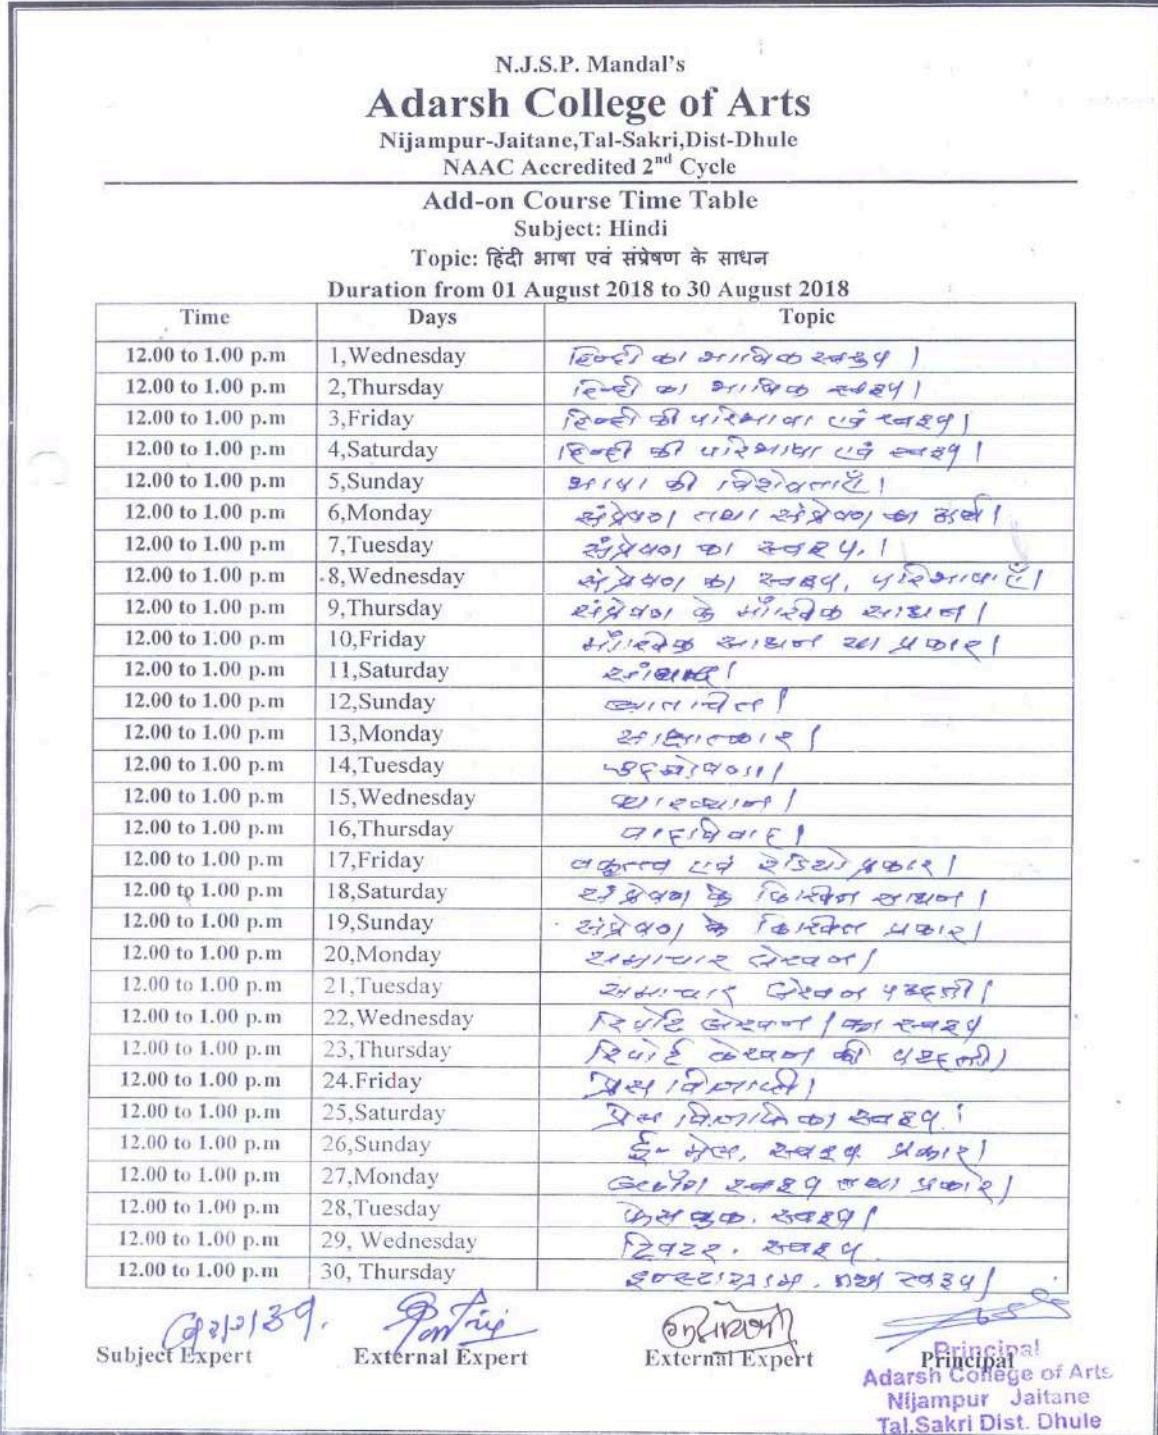 N.J.S.P. Mandal's
Adarsh College of Arts
Nijampur-Jaitane,Tal-Sakri,Dist-Dhule
NAAC Accredited 2nd Cycle
Add-on Course Time Table
Subject: Hindi
Topic: हिंदी भाषा एवं संप्रेषण के साधन
Duration from 01 August 2018 to 30 August 2018
Time Days Topic
12.00 to 1.00 p.m 1,Wednesday हिन्दी का भाषिक स्वरुप ।
12.00 to 1.00 p.m 2,Thursday हिन्दी का भाषिक स्वरूप ।
12.00 to 1.00 p.m 3,Friday हिन्दी की परिभाषा एवं स्वरूप ।
12.00 to 1.00 p.m 4,Saturday हिन्दी की परिभाषा एवं स्वरूप ।
12.00 to 1.00 p.m 5,Sunday भाषा की विशेषताएँ ।
12.00 to 1.00 p.m 6,Monday संप्रेषण तथा संप्रेषण का अर्थ ।
12.00 to 1.00 p.m 7,Tuesday संप्रेषण का स्वरूप. ।
12.00 to 1.00 p.m 8,Wednesday संप्रेषण का स्वरूप, परिभाषाएँ ।
12.00 to 1.00 p.m 9,Thursday संप्रेषण के मौखिक साधन ।
12.00 to 1.00 p.m 10,Friday मौखिक साधन या प्रकार ।
12.00 to 1.00 p.m 11,Saturday
12.00 to 1.00 p.m 12,Sunday
12.00 to 1.00 p.m 13,Monday साक्षात्कार ।
12.00 to 1.00 p.m 14,Tuesday उद्घोषणा ।
12.00 to 1.00 p.m 15,Wednesday व्याख्यान ।
12.00 to 1.00 p.m 16,Thursday वादविवाद ।
12.00 to 1.00 p.m 17,Friday वक्तृत्व एवं रेडियो प्रकार ।
12.00 to 1.00 p.m 18,Saturday संप्रेषण के लिखित साधन ।
12.00 to 1.00 p.m 19,Sunday संप्रेषण के लिखित प्रकार ।
12.00 to 1.00 p.m 20,Monday समाचार लेखन ।
12.00 to 1.00 p.m 21,Tuesday समाचार लेखन पद्धती ।
12.00 to 1.00 p.m 22,Wednesday रिपोर्ट लेखन । का स्वरूप
12.00 to 1.00 p.m 23,Thursday रिपोर्ट लेखन की पद्धती ।
12.00 to 1.00 p.m 24.Friday प्रेस विज्ञप्ती ।
12.00 to 1.00 p.m 25,Saturday प्रेस विज्ञप्ति का स्वरूप ।
12.00 to 1.00 p.m 26,Sunday ई-मेल, स्वरूप प्रकार ।
12.00 to 1.00 p.m 27,Monday ब्लॉग स्वरूप तथा प्रकार ।
12.00 to 1.00 p.m 28,Tuesday फेसबुक. स्वरूप ।
12.00 to 1.00 p.m 29, Wednesday ट्विटर. स्वरूप
12.00 to 1.00 p.m 30, Thursday इन्स्टाग्राम. स्वरूप ।
Subject Expert External Expert External Expert Principal
Principal
Adarsh College of Arts
Nijampur Jaitane
Tal.Sakri Dist. Dhule